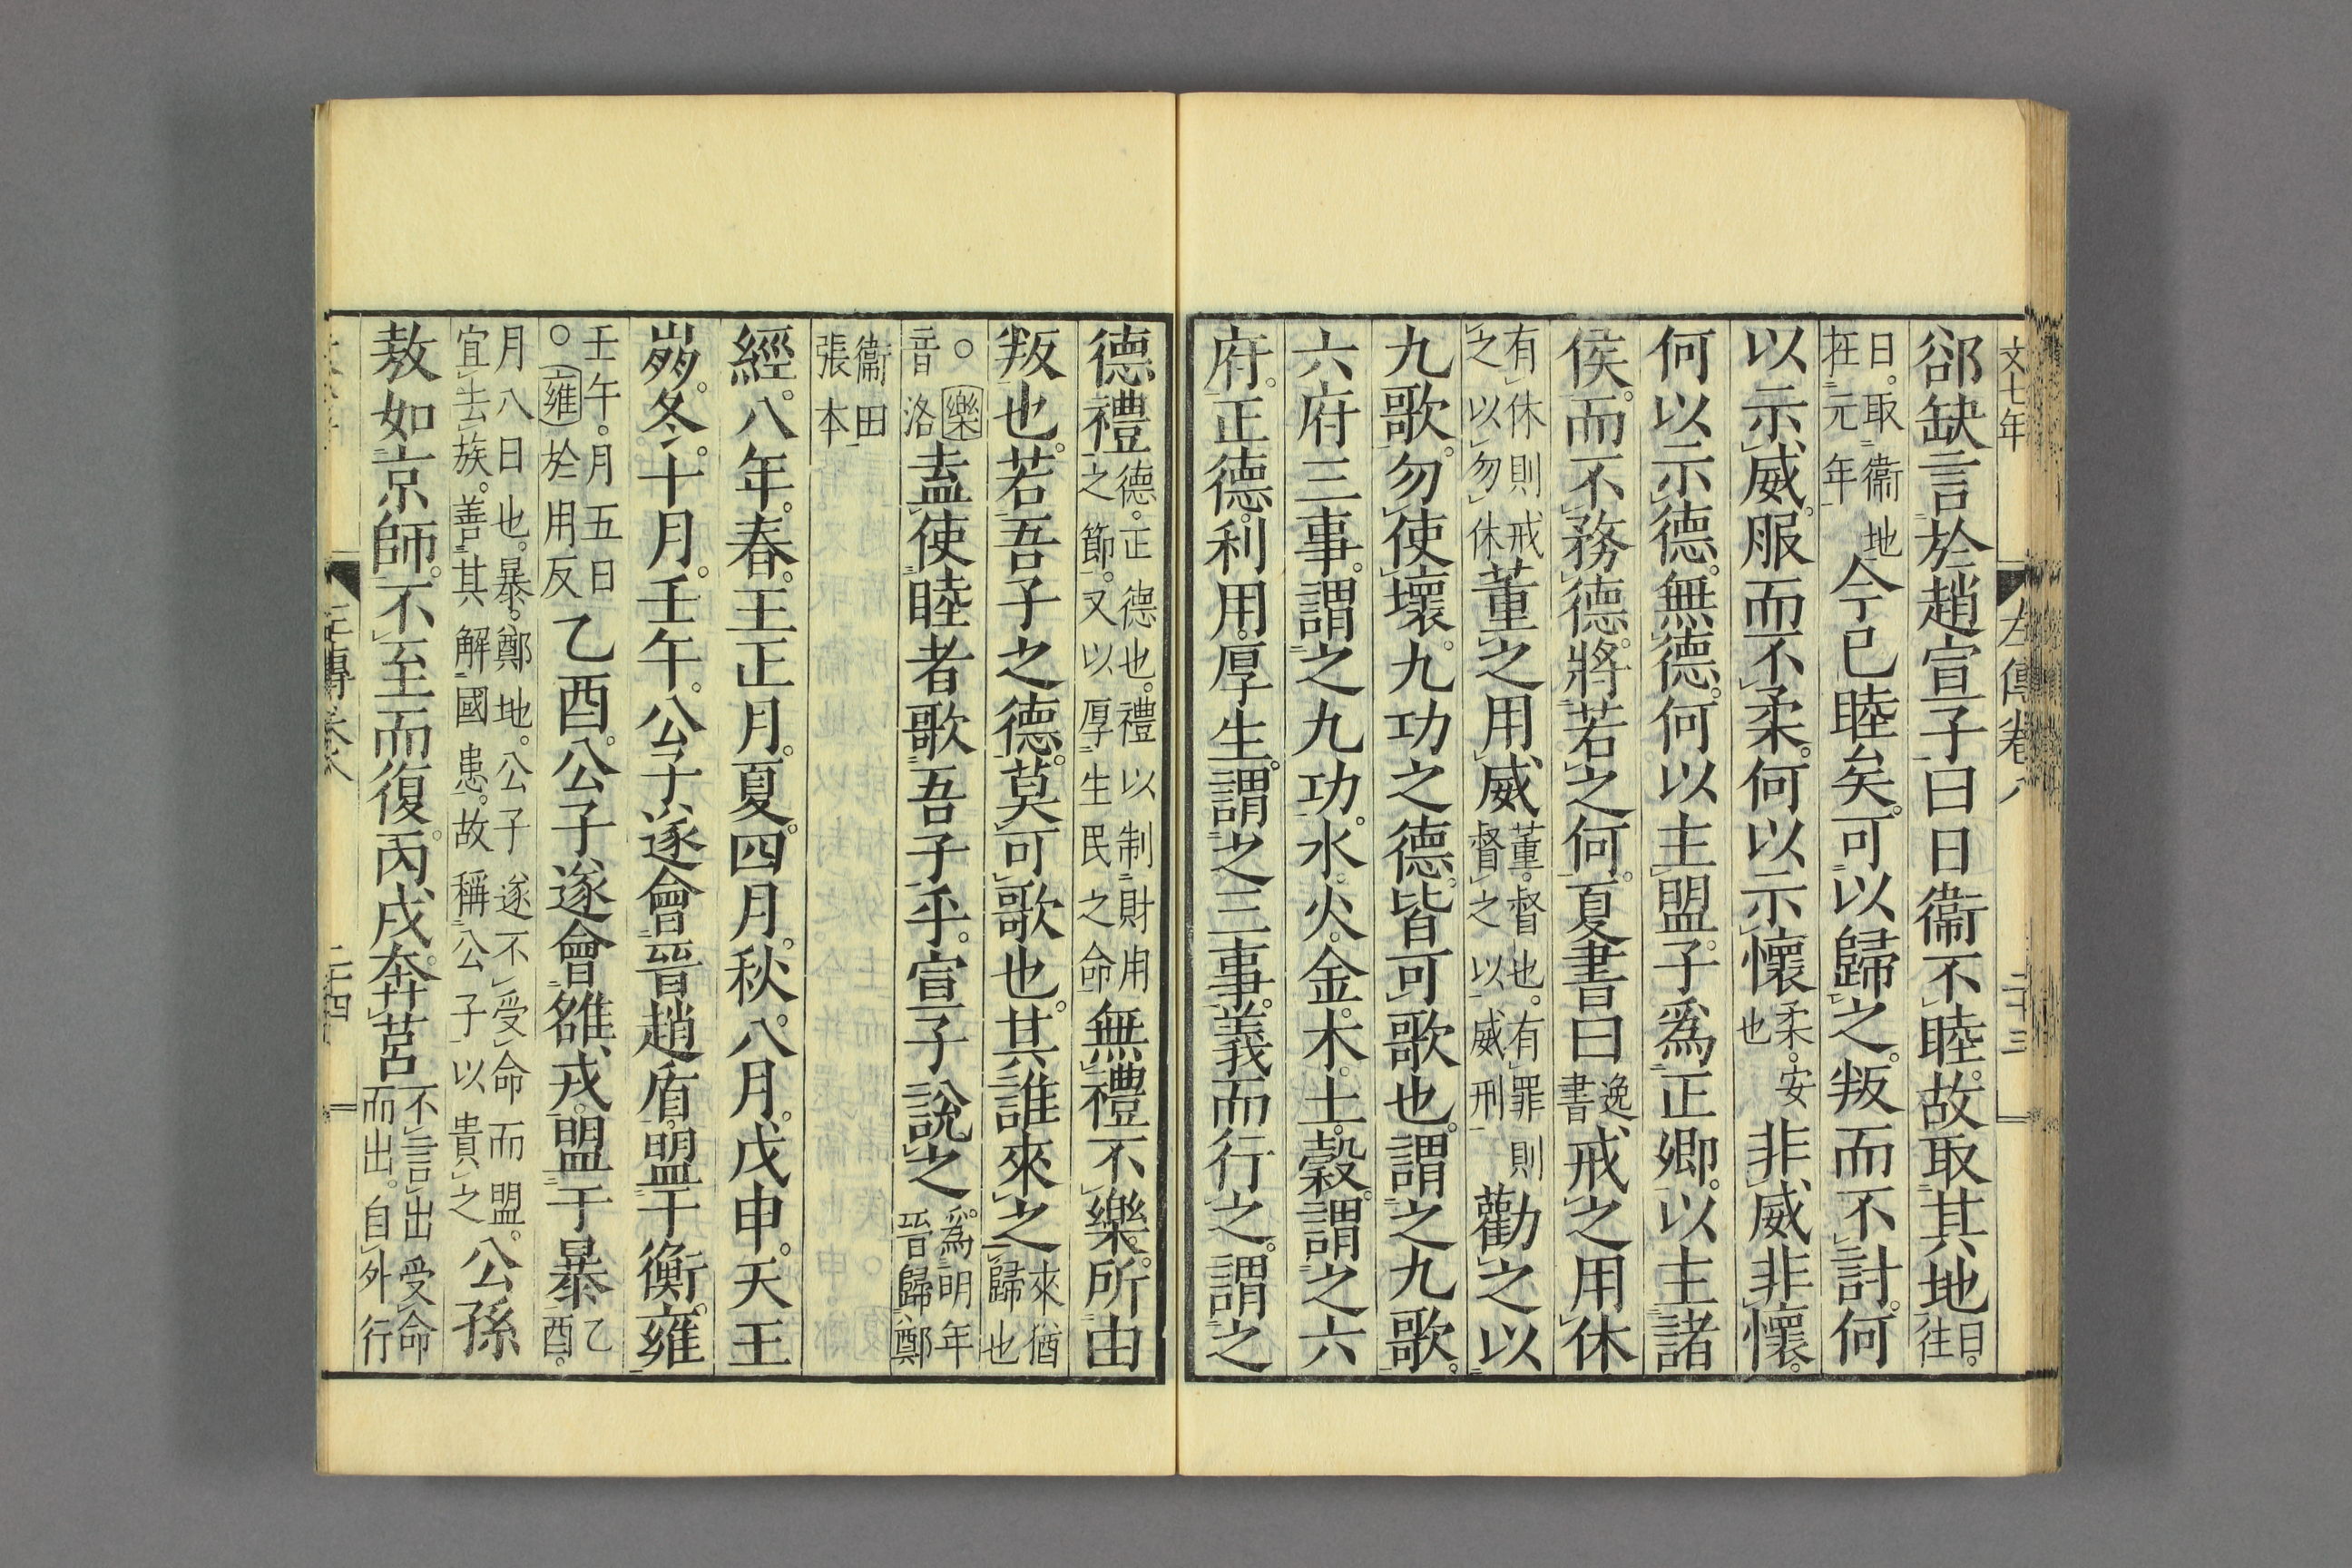 文七年
左傳卷八
二十三
郤缺言於趙宣子曰日衞不睦故取其地日。往
日。取衞地
在元年
今已睦矣。可以歸之。叛而不討。何
以示威。服而不柔。何以示懷柔。安也
非威非懷。
何以示德。無德。何以主盟。子爲正卿。以主諸
侯。而不務德。將若之何。夏書曰逸書
戒之用休
有休則戒
之以勿休
董之用威董。督也。有罪則
督之以威刑
勸之以
九歌。勿使壞。九功之德。皆可歌也。謂之九歌。
六府三事。謂之九功。水。火。金。木。土。穀。謂之六
府。正德。利用。厚生。謂之三事。義而行之。謂之
德禮德。正德也。禮以制財用
之節。又以厚生民之命
無禮不樂。所由
叛也。若吾子之德。莫可歌也。其誰來之來猶
歸也
○樂
音洛
盍使睦者歌吾子乎。宣子說之。爲明年
晉歸鄭
衞田
張本
經。八年。春。王正月。夏。四月。秋。八月。戊申。天王
崩。冬。十月。壬午。公子遂會晉趙盾。盟于衡。雍
壬午。月五日
○雍於用反
乙酉。公子遂會雒戎。盟于暴乙
酉。
月八日也。暴。鄭地。公子遂不受命而盟。
宜去族。善其解國患。故稱公子以貴之
公孫
敖如京師。不至而復。丙戌。奔莒不言出受命
而出。自外行
左傳卷八
二十四